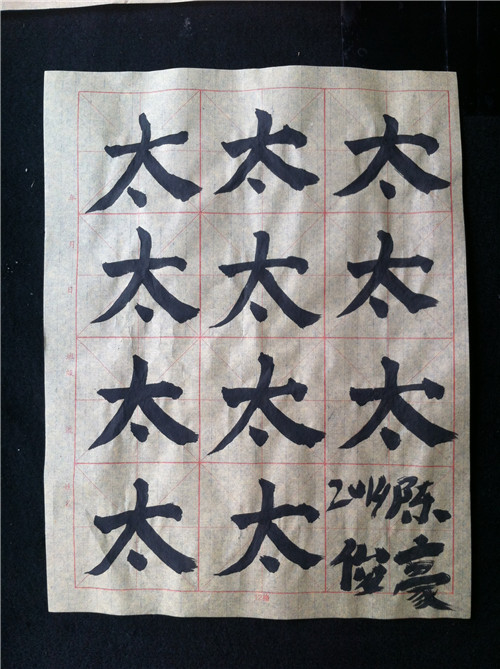 太太太
太太太
太太太
太太
2014陈
俊豪